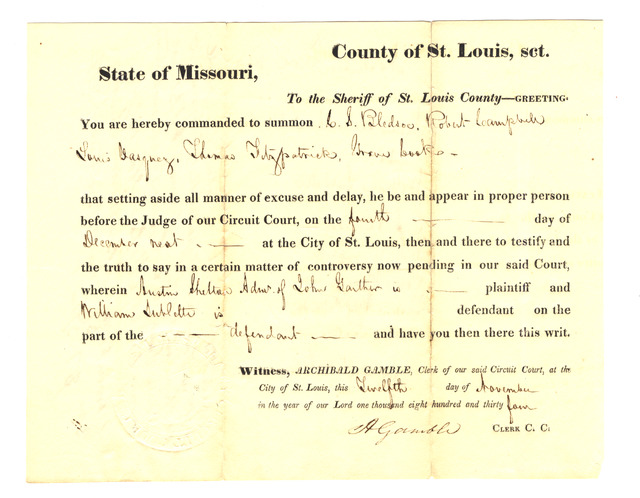 County of St. Louis, sct.
State of Missouri,
To the Sheriff of St. Louis County—GREETING.
You are hereby commanded to summon L. S. Bledsoe, Robert Campbell
Louis Vasquez, Thomas Fitzpatrick,
that setting aside all manner of excuse and delay, he be and appear in proper person
before the Judge of our Circuit Court, on the fourth day of
December next at the City of St. Louis, then and there to testify and
the truth to say in a certain matter of controversy now pending in our said Court,
wherein Austin Admr. of John Ganther is plaintiff and
William Sublette is defendant on the
part of the defendant and have you then there this writ.
Witness, ARCHIBALD GAMBLE, Clerk of our said Circuit Court, at the
City of St. Louis, this Twelfth day of November
in the year of our Lord one thousand eight hundred and thirty four
A Gamble CLERK C. C.